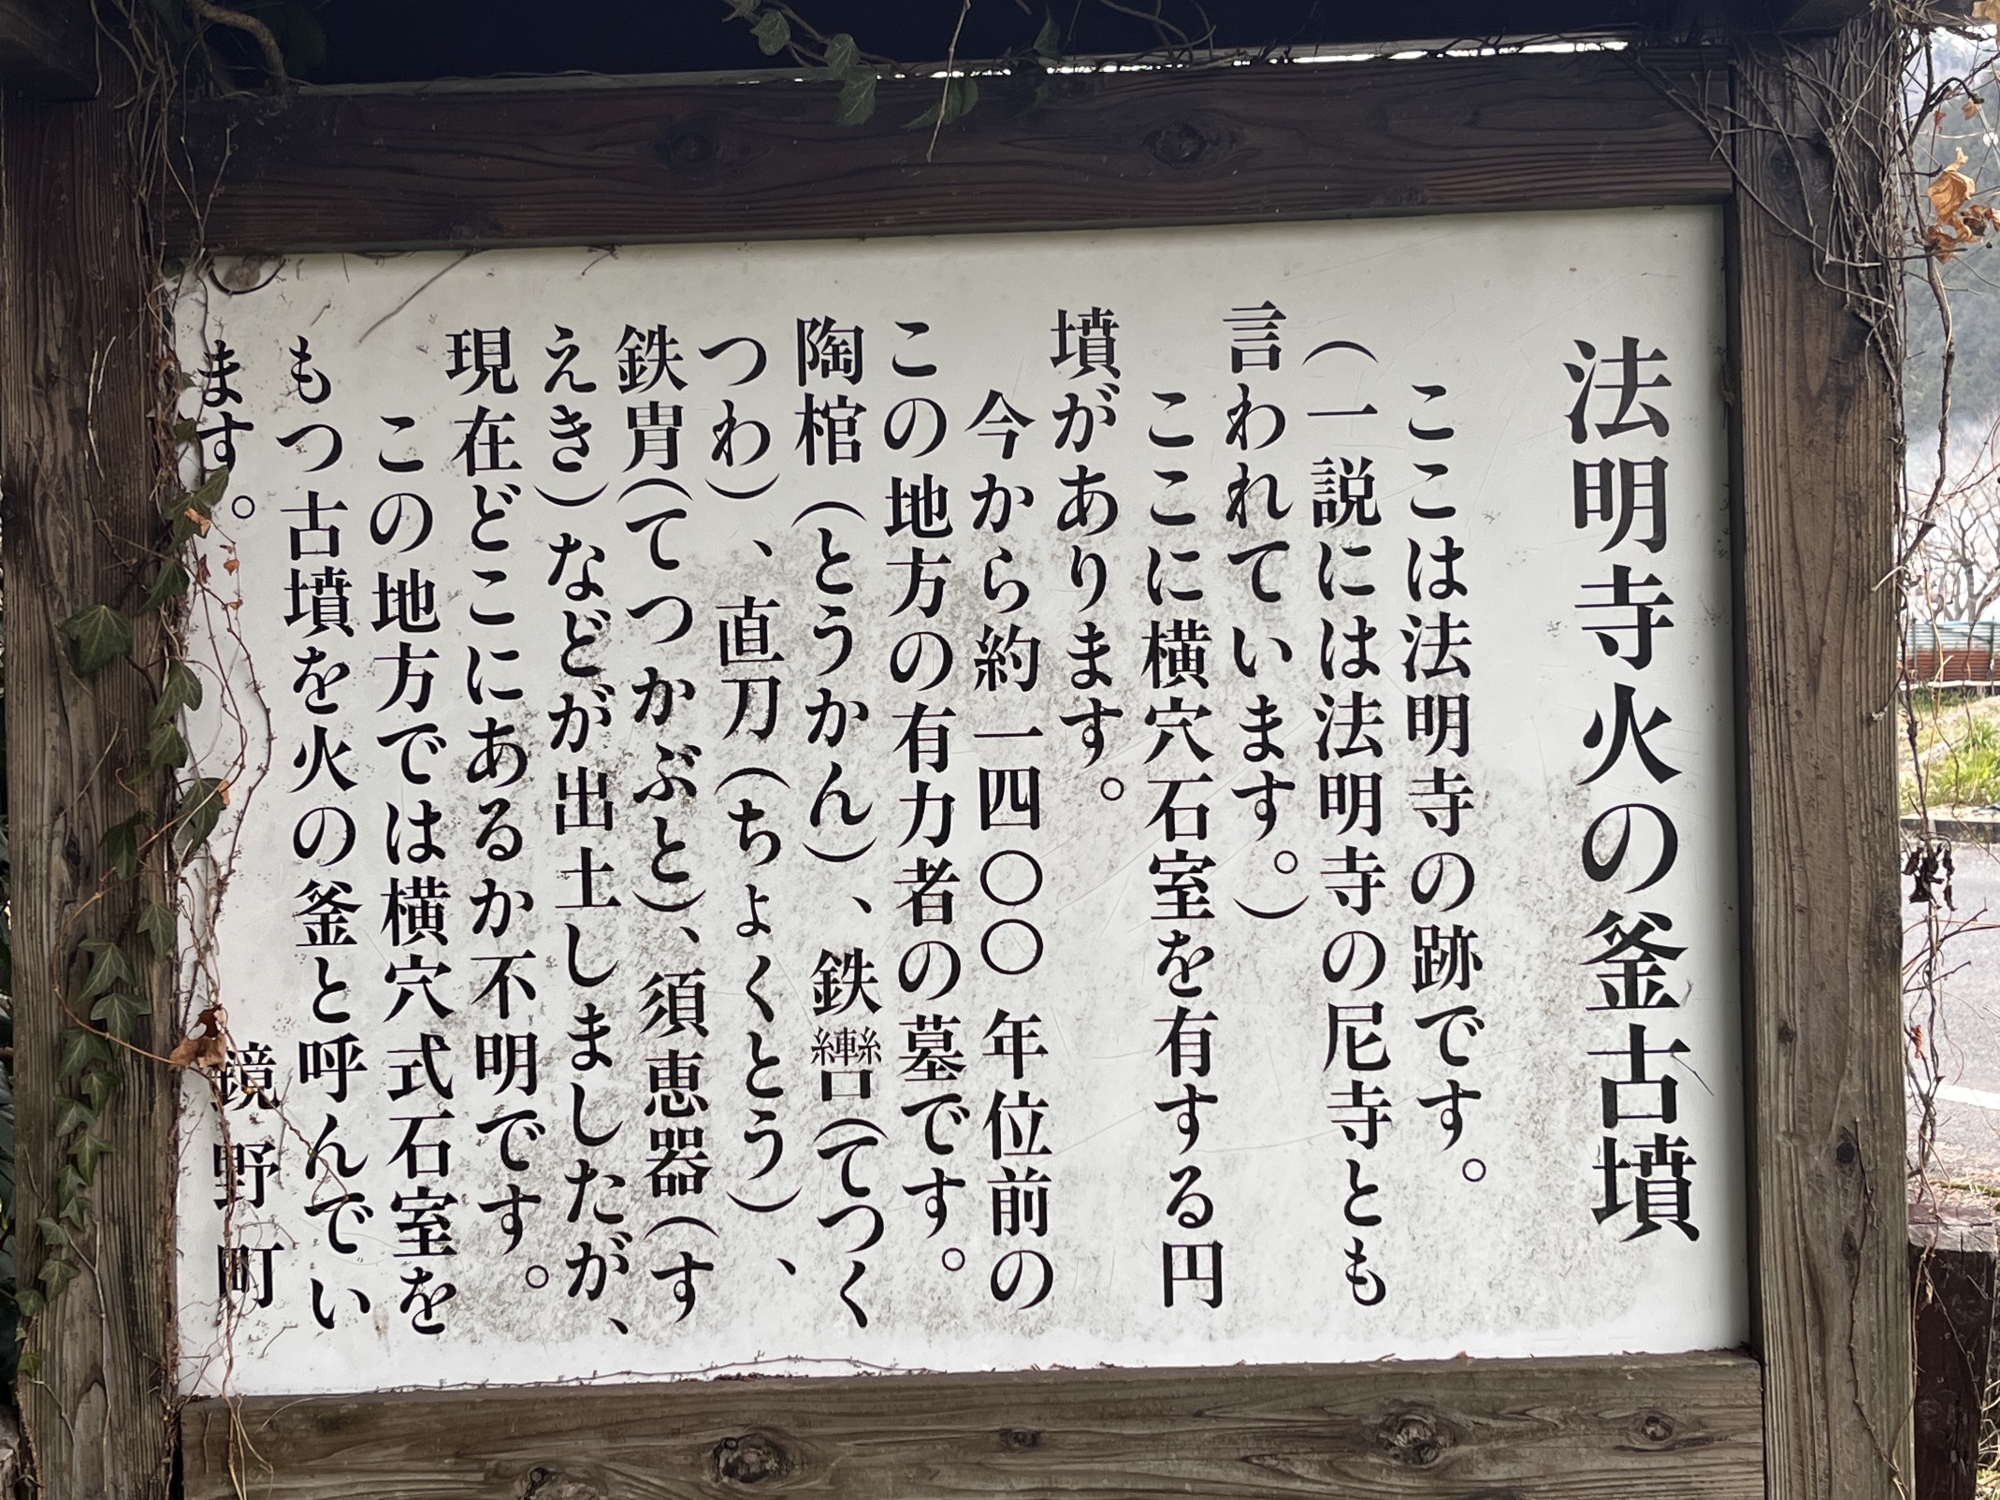 法明寺火の釜古墳
ここは法明寺の跡です。
(一説には法明寺の尼寺とも
言われています。)
ここに横穴石室を有する円
墳があります。
今から約一四〇〇年位前の
この地方の有力者の墓です。
陶棺(とうかん)、鉄轡(てつく
つわ)、直刀(ちょくとう)、
鉄冑(てつかぶと)、須恵器(す
えき)などが出土しましたが、
現在どこにあるか不明です。
この地方では横穴式石室を
もつ古墳を火の釜と呼んでい
ます。
鏡野町